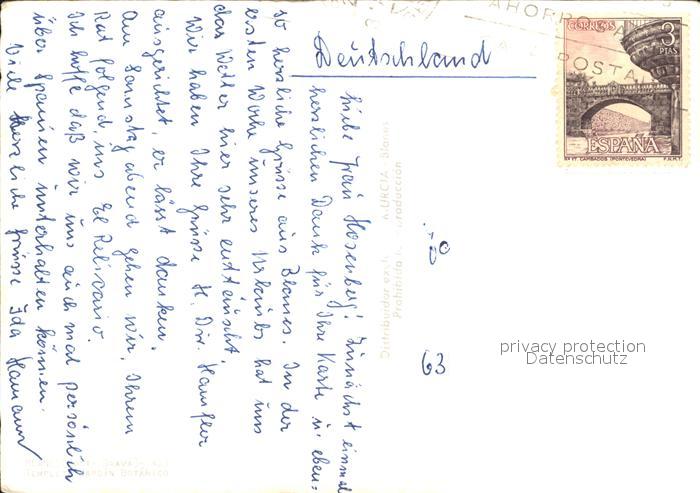 Deutschland
Liebe Frau Hosenberg! Zunächst einmal
herzlichen Dank für Ihre Karte u. eben-
so herzliche Grüsse aus Blanes. In der
ersten Woche unseres Urlaubs hat uns
das Wetter hier sehr enttäuscht.
Wir haben Ihre Grüsse H. Dir. Hampfler
ausgerichtet, er lässt danken.
Am Sonnstag abend gehen wir, Ihrem
Rat folgend, ins El Relicario.
Ich hoffe daß wir uns auch mal persönlich
über Spanien unterhalten können.
Viele herzliche Grüsse Ida Hamann
AHORR
POSTA
CORREOS
3
PTAS
ESPAÑA
CAMBADOS (PONTEVEDRA)
F.N.M.T.
MURCIA Blanes
Distribuidor
Prohibida
roducción
63
privacy protection
Datenschutz
JARDÍN BOTÁNICO